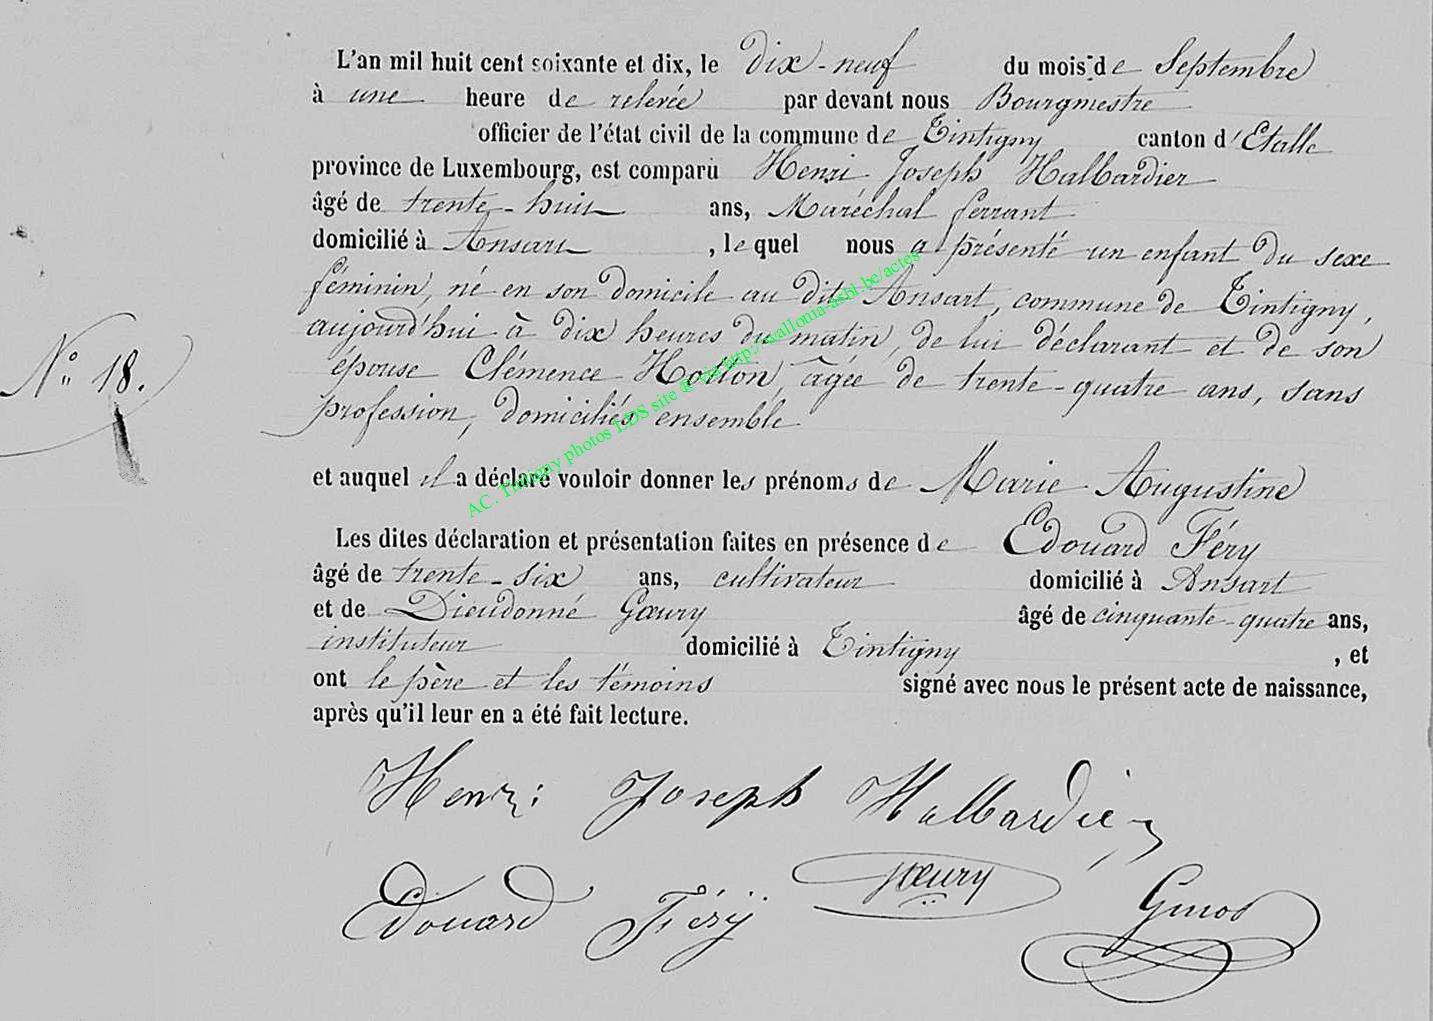 L'an mil huit cent soixante et dix, le dix-neuf du mois de Septembre
à une heure de relevée par devant nous Bourgmestre
officier de l'état civil de la commune de Tintigny canton d'Etalle
province de Luxembourg, est comparu Henri Joseph Halbardier
âgé de trente-huit ans, Maréchal ferrant
domicilié à Ansart, lequel nous a présenté un enfant du sexe
féminin, né en son domicile au dit Ansart, commune de Tintigny,
aujourd'hui à dix heures du matin, de lui déclarant et de son
N° 18.
épouse Clémence Hotton, âgée de trente-quatre ans, sans
profession, domiciliés ensemble
et auquel il a déclaré vouloir donner les prénoms de Marie Augustine
Les dites déclaration et présentation faites en présence de Edouard Féry
âgé de trente-six ans, cultivateur domicilié à Ansart
et de Dieudonné Gœury âgé de cinquante-quatre ans,
instituteur domicilié à Tintigny, et
ont le père et les témoins signé avec nous le présent acte de naissance,
après qu'il leur en a été fait lecture.
Henri Joseph Halbardier
Edouard Féry Gœury
AC. Tintigny photos LDS site @ via http://wallonia-asbl.be/actes